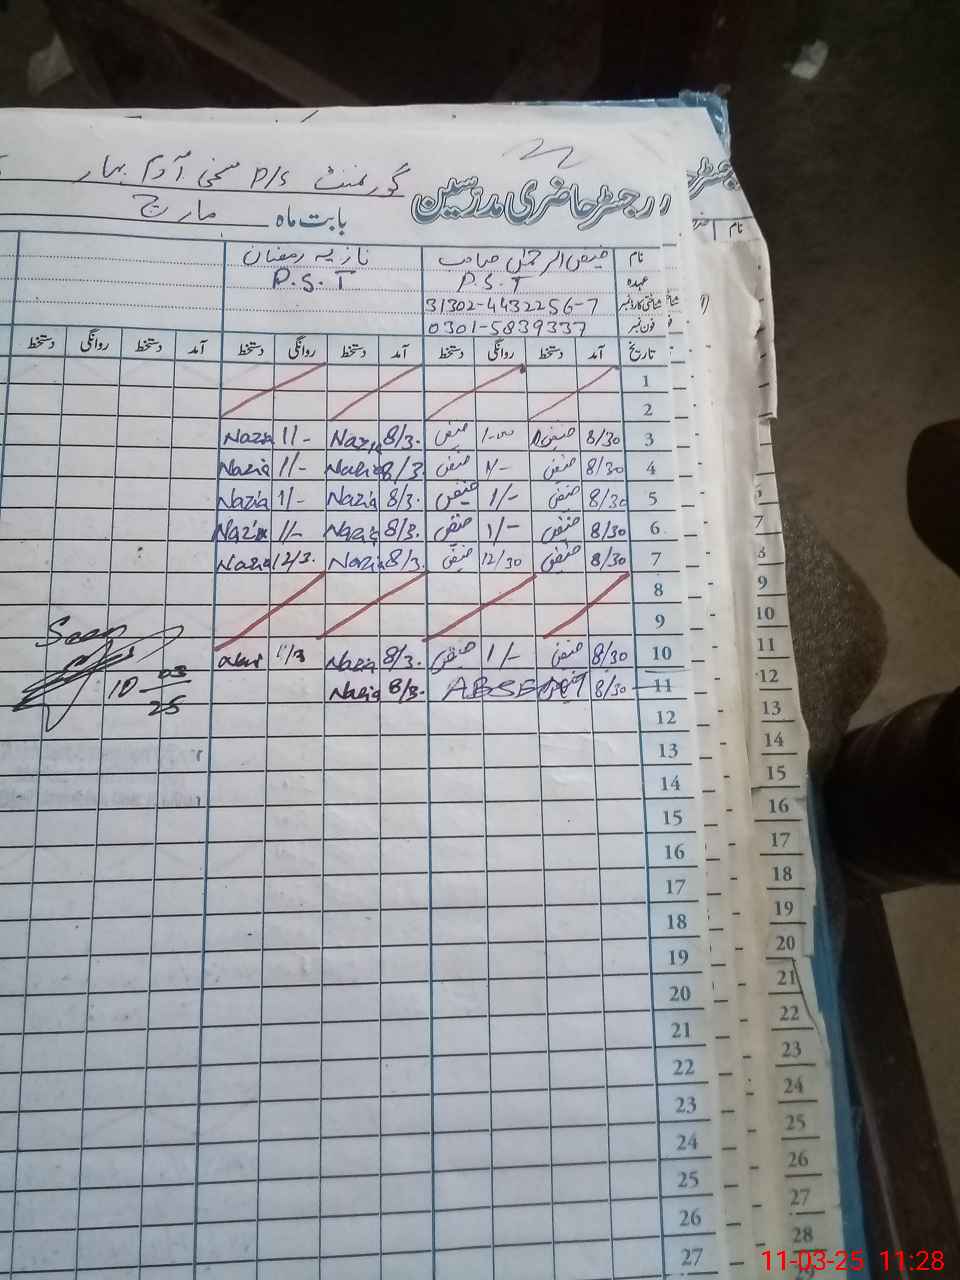 رجسٹر حاضری مدرسین گورنمنٹ P/S سخی آدم بہار
بابت ماہ مارچ
نام فیض الرحمٰن صاحب نازیہ رمضان
عہدہ P.S.T P.S.T
شناختی کارڈ نمبر 31302-4432256-7
فون نمبر 0301-5839337
تاریخ آمد دستخط روانگی دستخط آمد دستخط روانگی دستخط آمد دستخط روانگی دستخط
1
2
3 8/30 Nazia 8/3. 1/- Nazia
4 8/30 1/- Nazia 8/3. 1/- Nazia
5 8/30 1/- Nazia 8/3. 1/- Nazia
6 8/30 1/- Nazia 8/3. 1/- Nazia
7 8/30 12/30 Nazia 8/3. 12/3. Nazia
8
9
10 8/30 1/- 8/3. Nazia
11 8/30 ABSENT 8/3. Nazia
10-03-25
12
13
14
15
16
17
18
19
20
21
22
23
24
25
26
27
نام
7
9
10
11
12
13
14
15
16
17
18
19
20
21
22
23
24
25
26
27
28
11-03-25 11:28